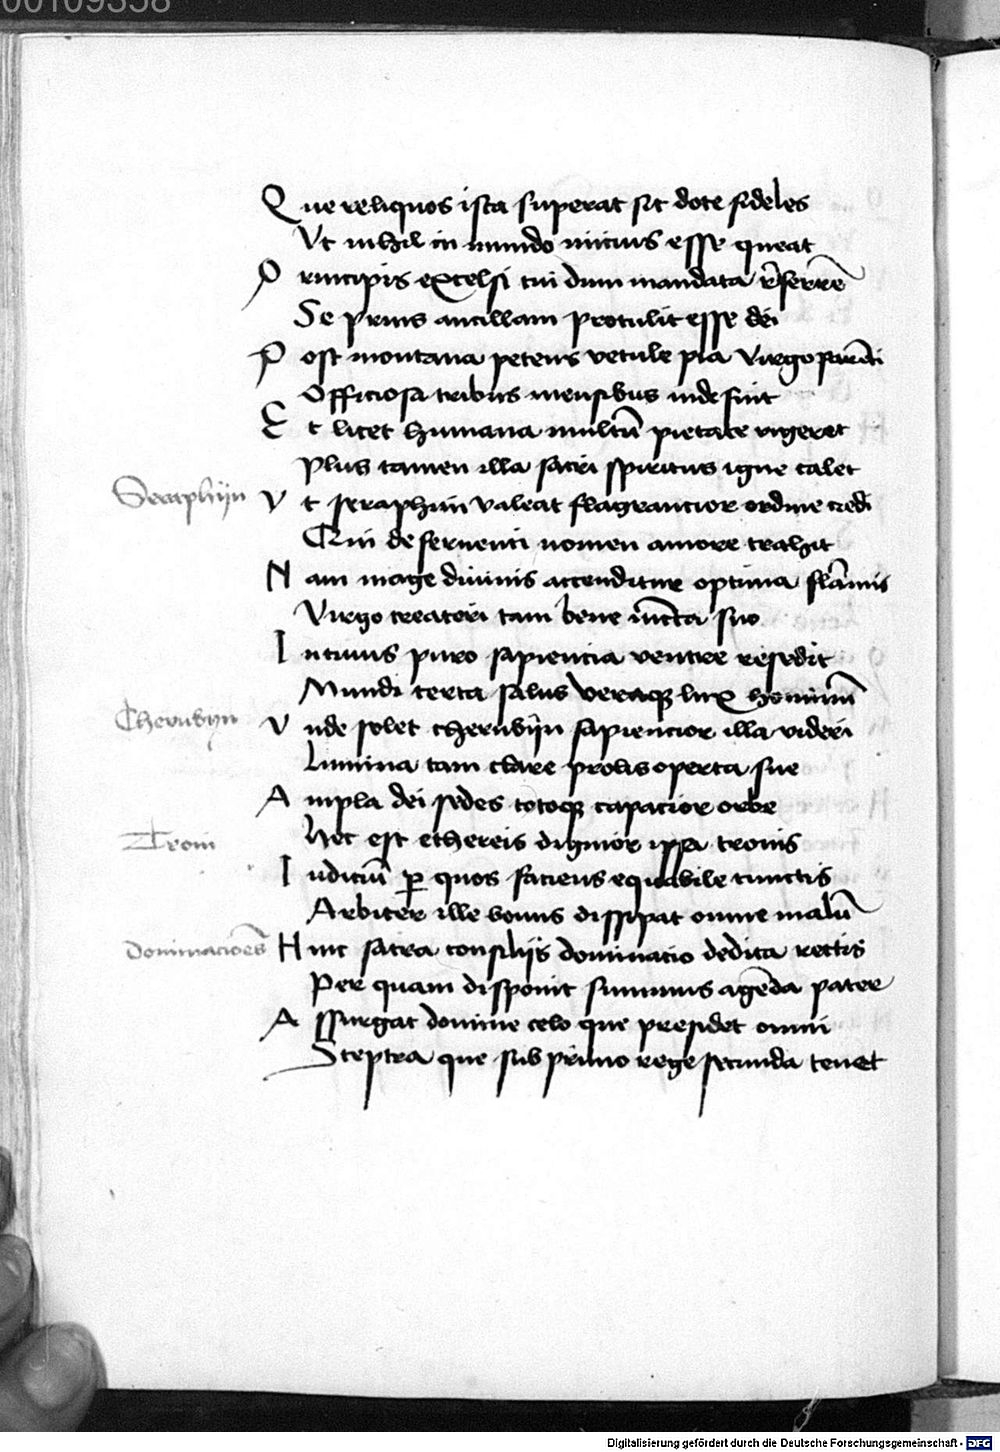 00109358
Que reliquos ista superat sit dote fideles
Ut nihil in mundo micius esse queat
Principis excelsi cui dum mandata r̄ferrē
Se prius ancillam protulit esse dei
Post montana petens vetule pia virgo parēti
Officiosa tribus mensibus inde fuit
Et licet humana multū pietate vigeret
Plus tamen illa sacri spiritus igne calet
Seraphijn Ut seraphin valeat flagrancior ordine credi
Cui de feruenti nomen amore trahit
Nam mage diuinis accenditur optima flāmis
Virgo creatori tam bene iūcta suo
Intimis puro sapiencia ventre resedit
Mundi certa salus veraqꝫ lux hominū
Cherubyn Unde solet cherubijn sapiencior illa videri
Lumina tam clare prolis operta sue
Ampla dei sedes totoqꝫ capacior orbe
Troni Hec est ethereis dignior ipsa tronis
Iudiciū ꝑ quos faciens equabile cunctis
Arbiter ille bonus dissipat omne malū
Dominacioēs Hinc sacra consilijs dominacio dedita rectis
Per quam disponit summus agēda pater
Assurgat domine celo que presidet omni
Sceptra que sub primo rege secunda tenet
Digitalisierung gefördert durch die Deutsche Forschungsgemeinschaft - DFG